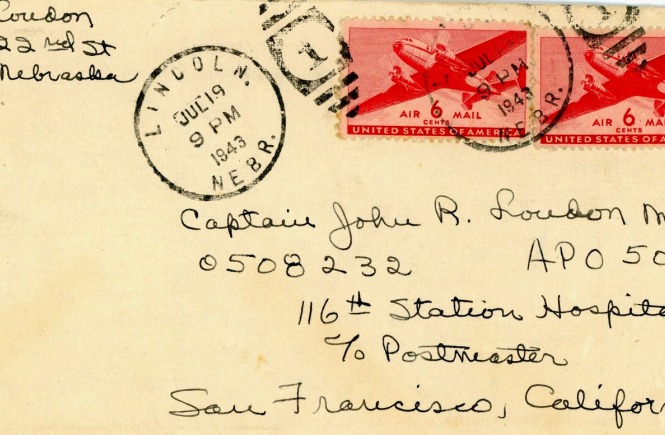 Loudon
22nd St
Nebraska
LINCOLN.
JUL 19
9 PM
1943
NEBR.
1
AIR 6 MAIL
CENTS
UNITED STATES OF AMERICA
JUL
9 PM
1943
NEBR.
AIR 6 MAI
CENTS
UNITED STATES OF A
Captain John R. Loudon M
0508232 APO 50
116th Station Hospita
c/o Postmaster
San Francisco, Califor